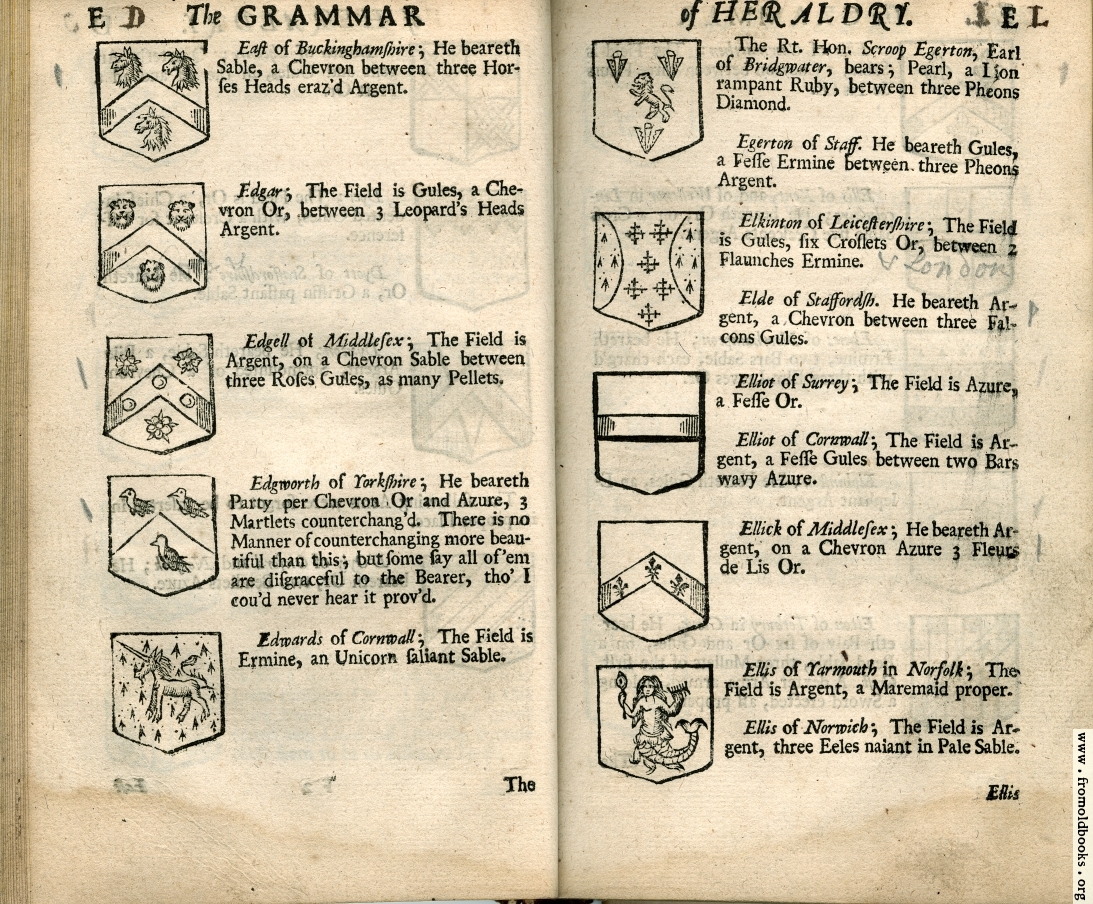 E D The GRAMMAR
Eaſt of Buckinghamſhire; He beareth
Sable, a Chevron between three Hor-
ſes Heads eraz'd Argent.
Edgar; The Field is Gules, a Che-
vron Or, between 3 Leopard's Heads
Argent.
Edgell of Middleſex; The Field is
Argent, on a Chevron Sable between
three Roſes Gules, as many Pellets.
Edgworth of Yorkſhire; He beareth
Party per Chevron Or and Azure, 3
Martlets counterchang'd. There is no
Manner of counterchanging more beau-
tiful than this; but ſome ſay all of 'em
are diſgraceful to the Bearer, tho' I
cou'd never hear it prov'd.
Edwards of Cornwall; The Field is
Ermine, an Unicorn ſaliant Sable.
The
of HERALDRY. E L
The Rt. Hon. Scroop Egerton, Earl
of Bridgwater, bears; Pearl, a Lion
rampant Ruby, between three Pheons
Diamond.
Egerton of Staff. He beareth Gules,
a Feſſe Ermine between three Pheons
Argent.
Elkinton of Leiceſterſhire; The Field
is Gules, ſix Croſlets Or, between 2
Flaunches Ermine. & London
Elde of Staffordſh. He beareth Ar-
gent, a Chevron between three Fal-
cons Gules.
Elliot of Surrey; The Field is Azure,
a Feſſe Or.
Elliot of Cornwall; The Field is Ar-
gent, a Feſſe Gules between two Bars
wavy Azure.
Ellick of Middleſex; He beareth Ar-
gent, on a Chevron Azure 3 Fleurs
de Lis Or.
Ellis of Yarmouth in Norfolk; The
Field is Argent, a Maremaid proper.
Ellis of Norwich; The Field is Ar-
gent, three Eeles naiant in Pale Sable.
Ellis
www.fromoldbooks.org